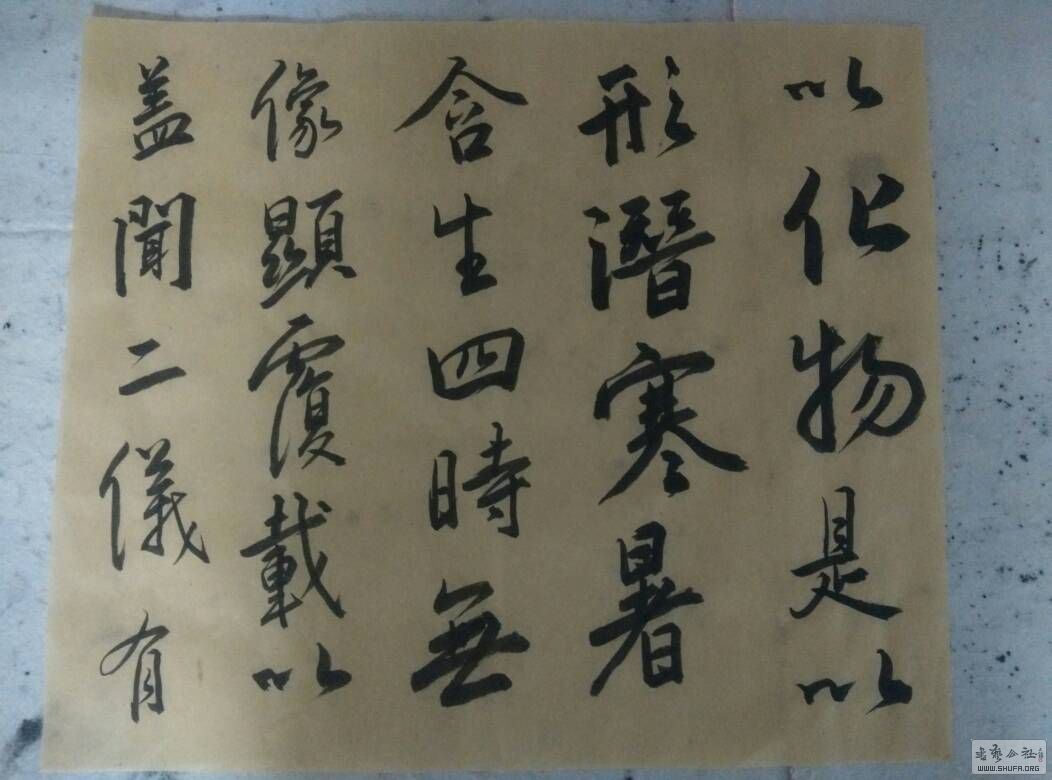 盖聞二儀有
像顯覆載以
含生四時無
形潛寒暑
以化物是以
書藝公社
WWW.SHUFA.ORG